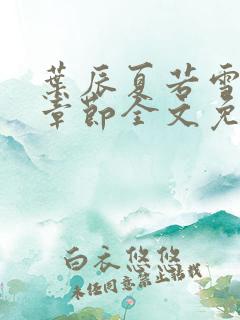 葉辰夏若雪
章節全文免
白衣悠悠
未经同意禁止转载